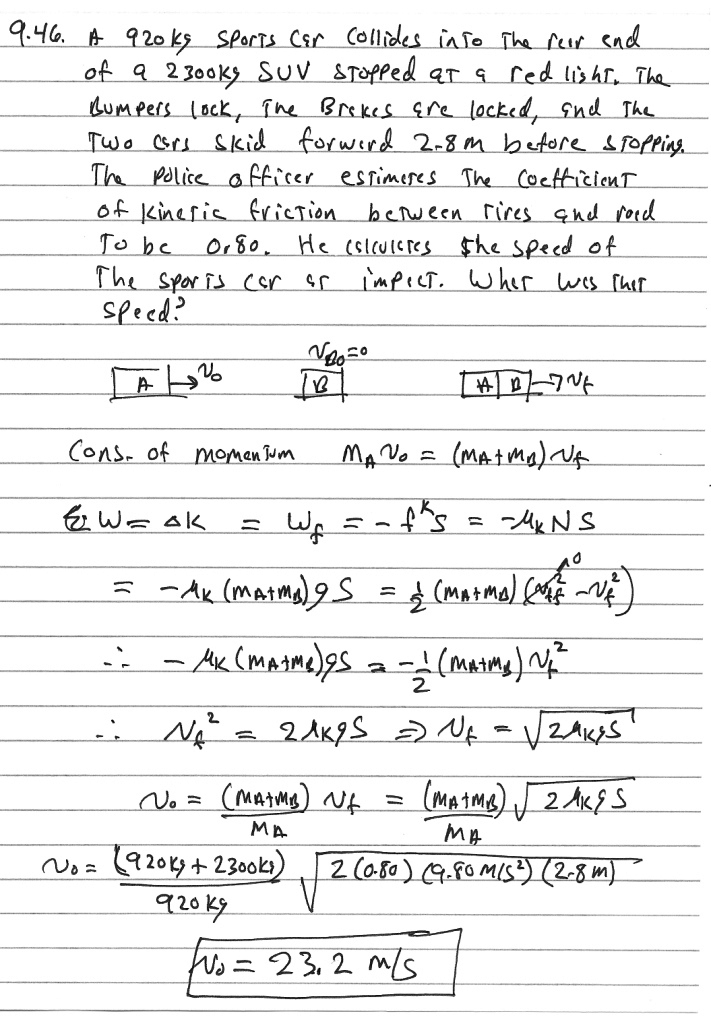 9.46. A 920kg sports car collides into the rear end
of a 2300kg SUV stopped at a red light. The
Bumpers lock, the Brakes are locked, and the
Two cars skid forward 2.8m before stopping.
The police officer estimates the coefficient
of kinetic friction between tires and road
To be 0.80. He calculates the speed of
the sports car at impact. What was that
speed?
v_B0=0
A → v_0 B A B → v_f
Cons. of momentum m_A v_0 = (m_A+m_B) v_f
Σ W = ΔK = W_f = -f^k S = -μ_k N S
= -μ_k (m_A+m_B) g S = 1/2 (m_A+m_B) (v_ff^2 - v_f^2) 0
∴ - μ_k (m_A+m_B) g S = -1/2 (m_A+m_B) v_f^2
∴ v_f^2 = 2μ_k g S ⇒ v_f = √2μ_k g S
v_0 = (m_A+m_B)/m_A v_f = (m_A+m_B)/m_A √2μ_k g S
v_0 = (920kg + 2300kg)/920kg √2(0.80)(9.80 m/s²)(2.8m)
v_0 = 23.2 m/s